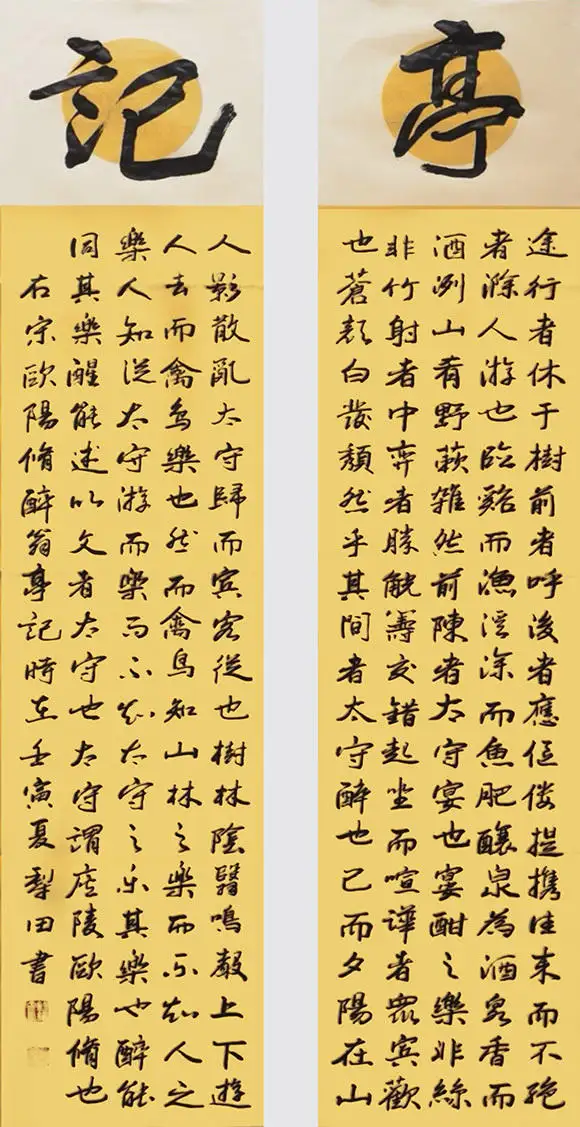 亭
途行者休于樹前者呼後者應傴僂提携往来而不绝
者滁人游也臨谿而漁溪深而魚肥釀泉為酒泉香而
酒洌山肴野蔌雜然前陳者太守宴也宴酣之樂非絲
非竹射者中弈者勝觥籌交錯起坐而喧譁者眾賓歡
也蒼顏白髮頹然乎其間者太守醉也已而夕陽在山
記
人影散亂太守歸而賓客從也樹林陰翳鳴聲上下遊
人去而禽鳥樂也然而禽鳥知山林之樂而不知人之
樂人知從太守游而樂而不知太守之乐其樂也醉能
同其樂醒能述以文者太守也太守謂庐陵歐陽脩也
右宋歐陽脩醉翁亭記時在壬寅夏犁田書